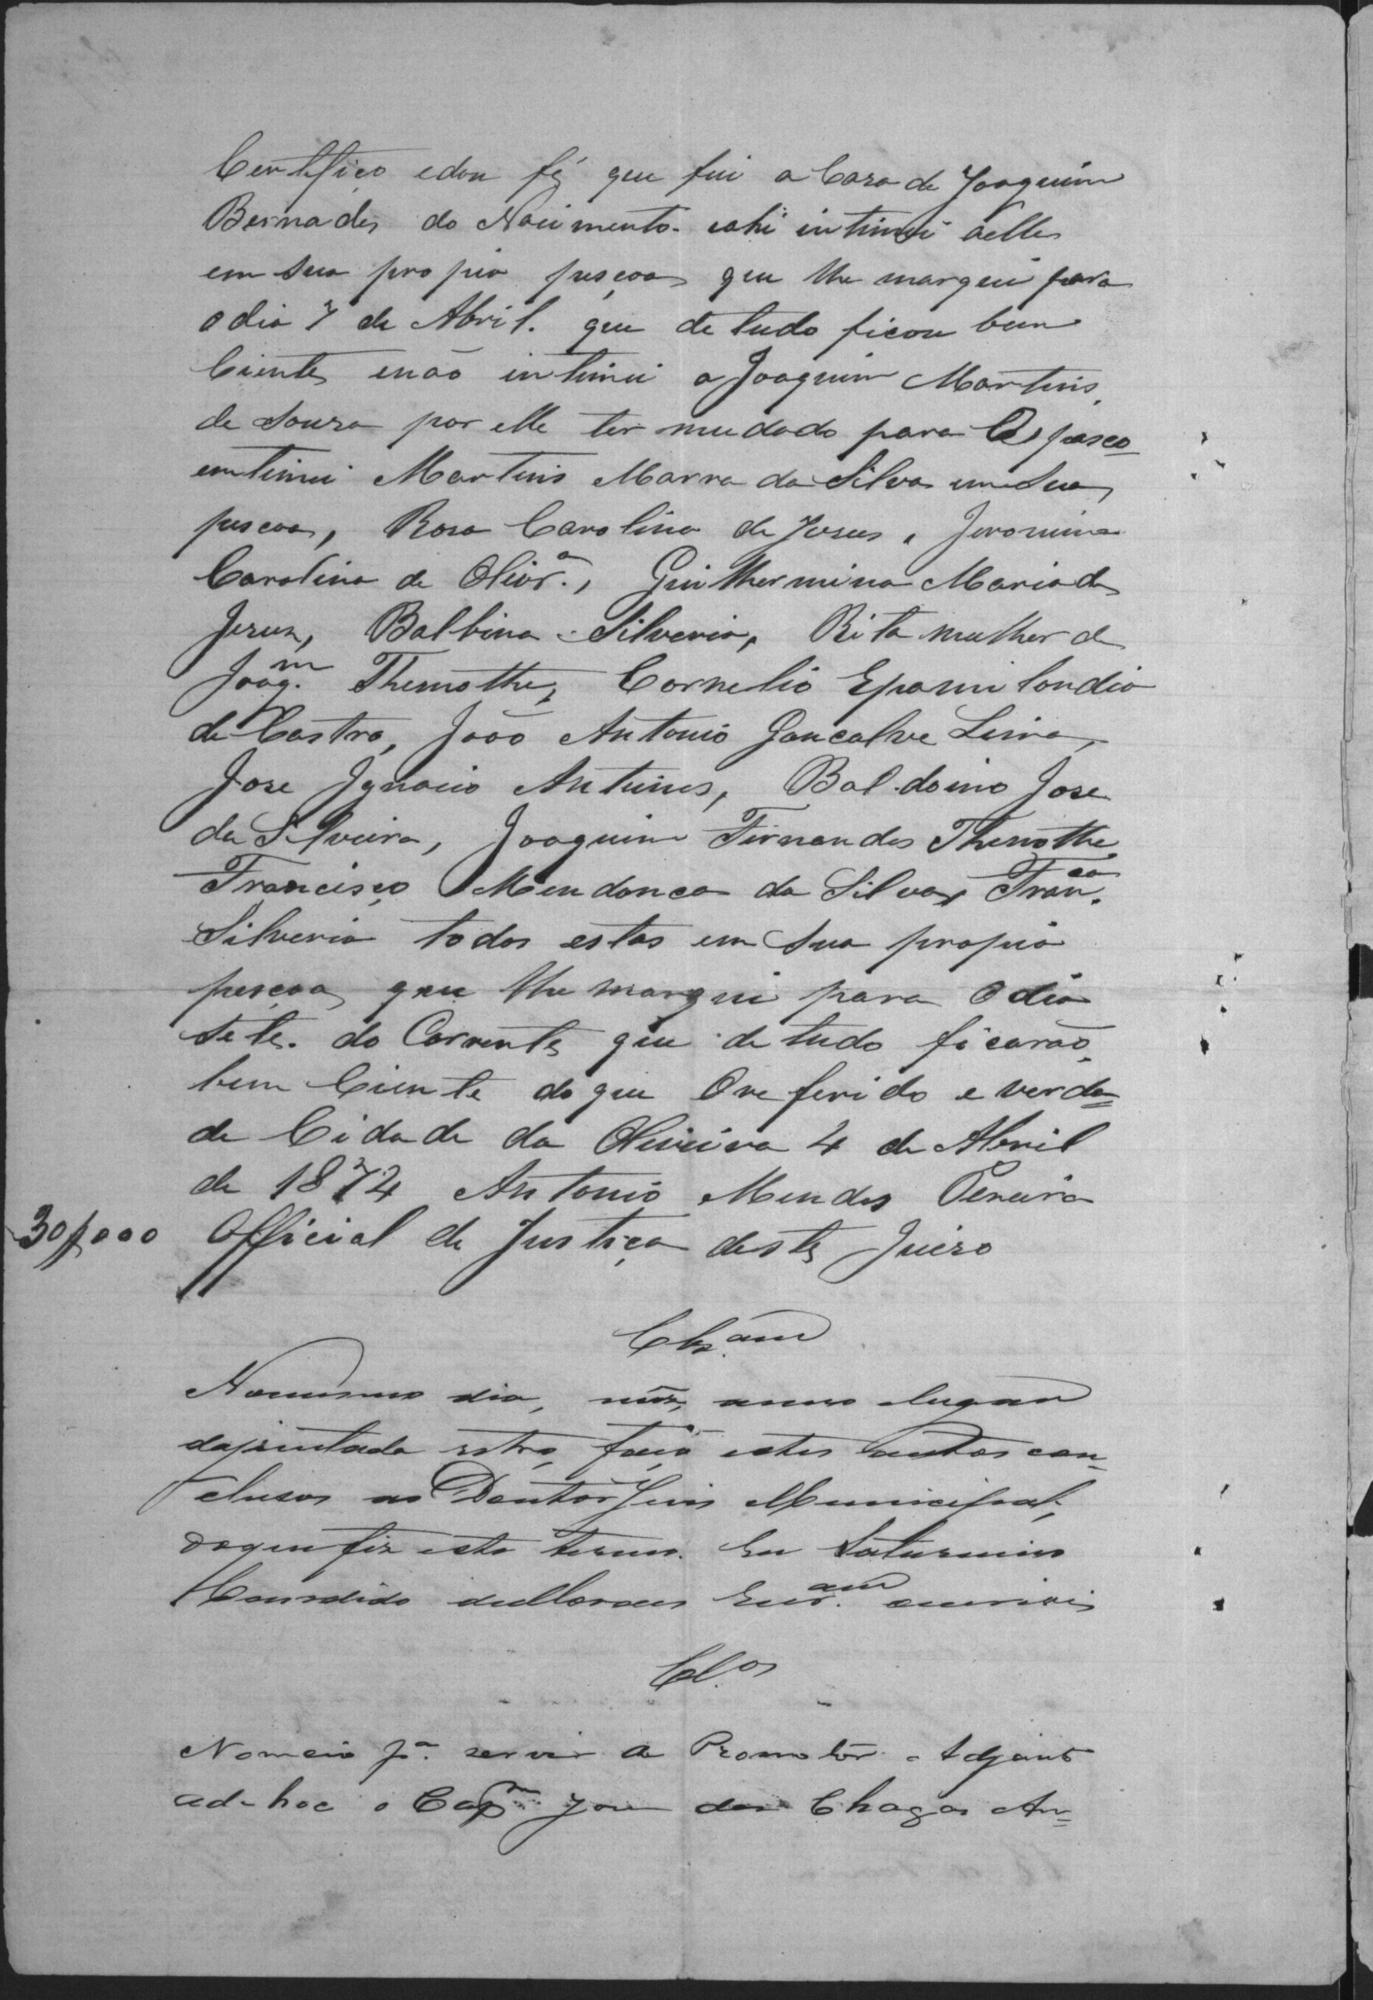 Certefico edou fé que fui a Casa de Joaquim
Bernades do Nacimento. eahi intimei aelle
em sua propia pesçoa que lhe marquei para
odia 7 de Abril. que de tudo ficou bem
Ciente enão intimei a Joaquim Martins
de Souza por elle ter mudado para
emtimei Martins Marra da Silva em Sua
pescoa, Rosa Carolina de Jesus, Jeronima
Carolina de Olivr.ª, Guilhermina Maria de
Jesus, Balbina Silveria, Rita mulher de
Joaq.m Themothe, Cornelio Epamilondia
de Castro, João Antonio Goncalve Lima,
Jose Ignacio Antunes, Baldoino Jose
da Silveira, Joaquim Fernandes Themothe
Francisço Mendonca da Silva, Fran.ca
Silveria todos estas em Sua propia
pesçoa que lhe marquei para o dia
sete. do Corrente que de tudo ficarão
bem Ciente do que Oreferido e verda=
de Cidade da Oliveira 4 de Abril
de 1874 Antonio Mendes Pereira
30$000 Official de Justiça deste Juizo
Clz.am
Nomesmo dia, mêz, anno elugar
dajuntada retro, faço estes autos con=
clusos ao Doutor Juis Municipal,
doque fiz este termo. Eu Saturnino
Candido Escr.am
Cl.os
Nomeio p.ª servir de Promotor Adjunto
ad-hoc o Cap.m José das Chagas An=